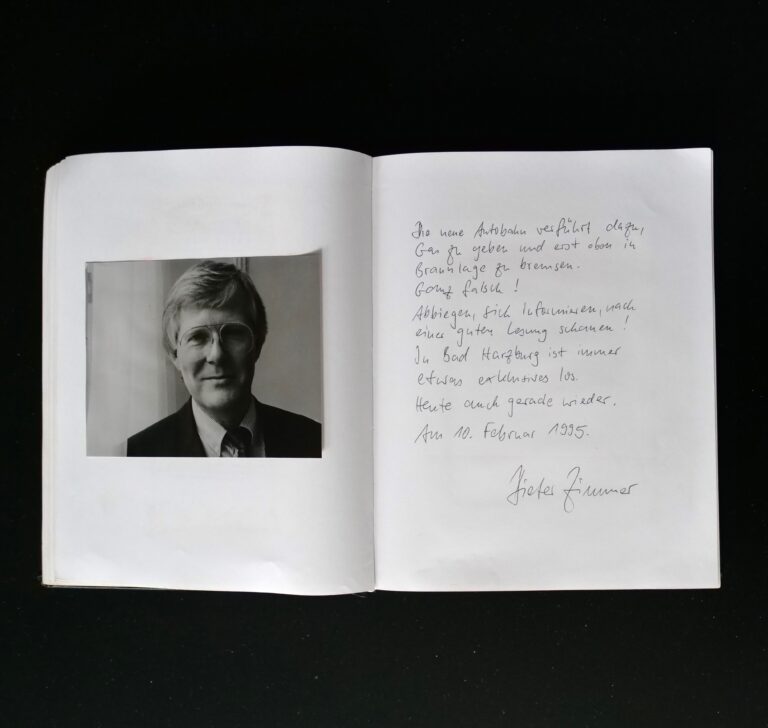 Die neue Autobahn verführt dazu,
Gas zu geben und erst oben in
Braunlage zu bremsen.
Ganz falsch!
Abbiegen, sich informieren, nach
einer guten Lesung schauen!
In Bad Harzburg ist immer
etwas exklusives los.
Heute auch gerade wieder.
Am 10. Februar 1995.
Dieter Zimmer